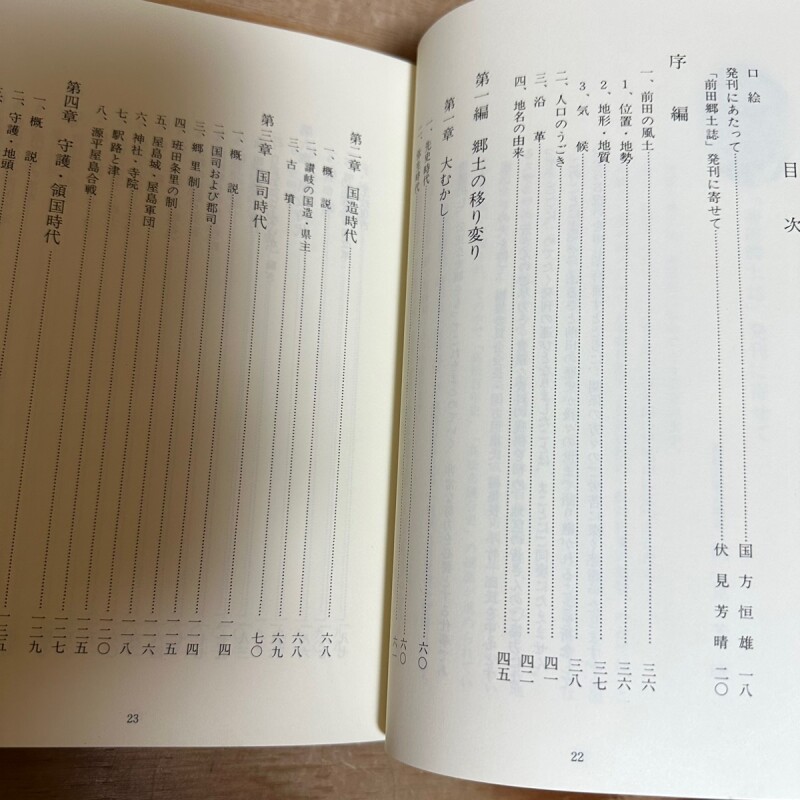 目次
口絵
発刊にあたって 国方恒雄 一八
「前田郷土誌」発刊に寄せて 伏見芳晴 二〇
序編
一、前田の風土 三六
1、位置・地勢 三六
2、地形・地質 三七
3、気候 三八
二、人口のうごき 四一
三、沿革 四二
四、地名の由来 四五
第一編 郷土の移り変り
第一章 大むかし 六〇
一、先史時代 六〇
二、弥生時代 六一
22
第二章 国造時代 六八
一、概説 六八
二、讃岐の国造・県主 六九
三、古墳 七〇
第三章 国司時代 一一四
一、概説 一一四
二、国司および郡司 一一五
三、郷里制 一一六
四、班田条里の制 一一八
五、屋島城・屋島軍団 一二〇
六、神社・寺院 一二五
七、駅路と津 一二七
八、源平屋島合戦 一二九
第四章 守護・領国時代 一三五
一、概説
二、守護・地頭
23